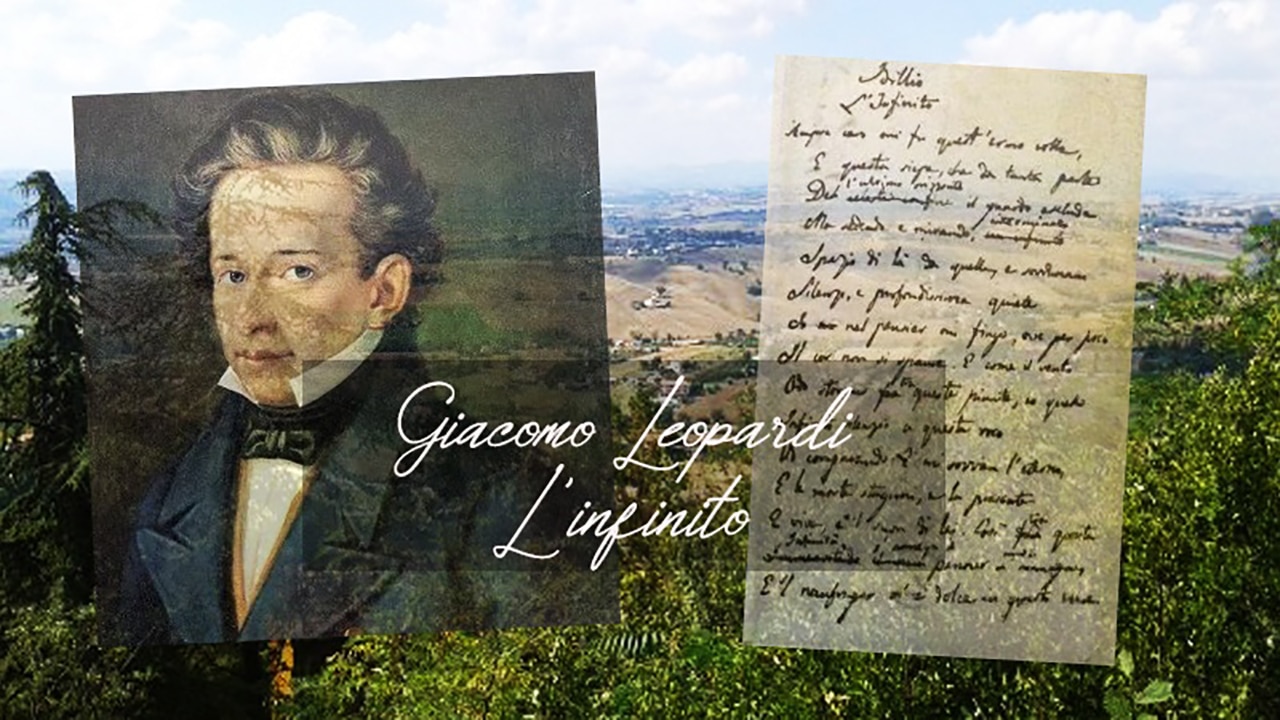 Idillio
L'Infinito
Sempre caro mi fu quest'ermo colle,
E questa siepe, che da tanta parte
l'ultimo orizzonte
Del celeste confine il guardo esclude
interminato
Ma sedendo e mirando,
Spazio di là da quella, e sovrumani
Silenzi, e profondissima quiete
Io nel pensier mi fingo, ove per poco
Il cor non si spaura. E come il vento
Odo stormir fra queste piante, io quello
Infinito silenzio a questa voce
Vo comparando: e mi sovvien l'eterno,
E le morte stagioni, e la presente
E viva, e 'l suon di lei. Così questa
Immensità
pensier
E 'l naufragar m'è dolce in questo mare
Giacomo Leopardi
L'infinito